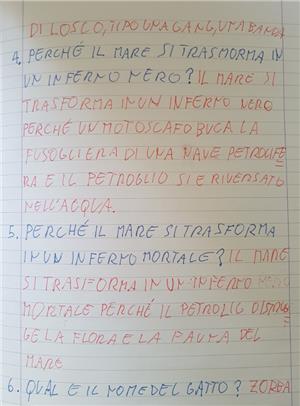 DI LOSCO, TIPO UNA GANG, UNA BANDA
4. PERCHÉ IL MARE SI TRASMORMA IN
UN INFERNO NERO? IL MARE SI
TRASFORMA IN UN INFERNO NERO
PERCHÉ UN MOTOSCAFO BUCA LA
FUSOGLIERA DI UNA NAVE PETROLIFE
RA E IL PETROGLIO SI E RIVERSATO
NELL'ACQUA.
5. PERCHÉ IL MARE SI TRASFORMA
IN UN INFERNO MORTALE? IL MARE
SI TRASIFORMA IN UN INFERNO
MORTALE PERCHÉ IL PETROLIO DISTRUG
GE LA FLORA E LA FAUNA DEL
MARE
6. QUAL E IL NOME DEL GATTO? ZORBA